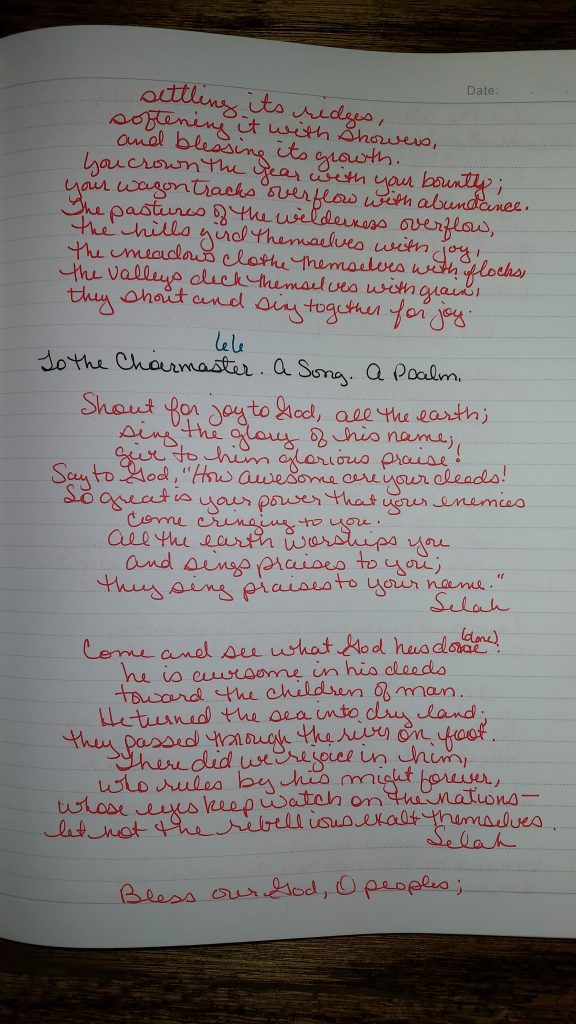 Date:
settling its ridges,
softening it with showers,
and blessing its growth.
You crown the year with your bounty;
your wagon tracks overflow with abundance.
The pastures of the wilderness overflow,
the hills gird themselves with joy,
the meadows clothe themselves with flocks,
the valleys deck themselves with grain,
they shout and sing together for joy.
66
To the Choirmaster. A Song. A Psalm.
Shout for joy to God, all the earth;
sing the glory of his name;
give to him glorious praise!
Say to God, "How awesome are your deeds!
So great is your power that your enemies
come cringing to you.
All the earth worships you
and sings praises to you;
they sing praises to your name."
Selah
Come and see what God has done (done):
he is awesome in his deeds
toward the children of man.
He turned the sea into dry land;
they passed through the river on foot.
There did we rejoice in him,
who rules by his might forever,
whose eyes keep watch on the nations—
let not the rebellious exalt themselves.
Selah
Bless our God, O peoples;